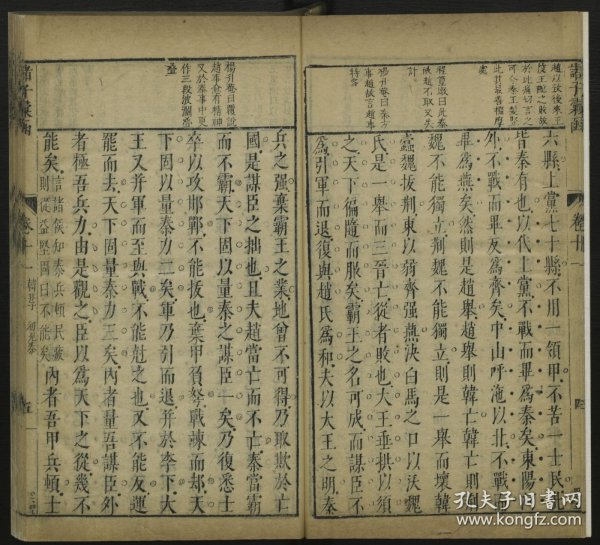 諸子彙函
楊升菴曰覆說
六縣上黨七十縣不用一領甲不苦一士民
皆秦有也以代上黨不戰而畢爲秦矣東陽
外不戰而畢反爲齊矣中山呼沲以北不戰
畢爲燕矣然則是趙舉趙舉則韓亡韓亡則
魏不能獨立荆魏不能獨立則是一舉而壞韓
蠹魏拔荆東以弱齊强燕決白馬之口以沃魏
氏是一舉而三晉亡從者敗也大王垂拱以須
之天下徧隨而服矣霸王之名可成而謀臣不
爲引軍而退復與趙氏爲和夫以大王之明秦
趙事愈有精神
作三段波瀾
兵之强棄霸王之業地曾不可得乃取欺於亡
國是謀臣之拙也且夫趙當亡而不亡秦當霸
而不霸天下固以量秦之謀臣一矣乃復悉士
卒以攻邯鄲不能拔也棄甲負弩戰竦而却天
下固以量秦力二矣軍乃引而退并於李下大
王又并軍而至與戰不能尅之也又不能反運
罷而去天下固量秦力三矣內者量吾謀臣外
者極吾兵力由是觀之臣以爲天下之從幾不
能矣言諸侯知秦兵頓民疲則從益堅固曰不能矣內者吾甲兵頓士
諸子彙函
卷十一
孔夫子旧书网
www.kongfz.com